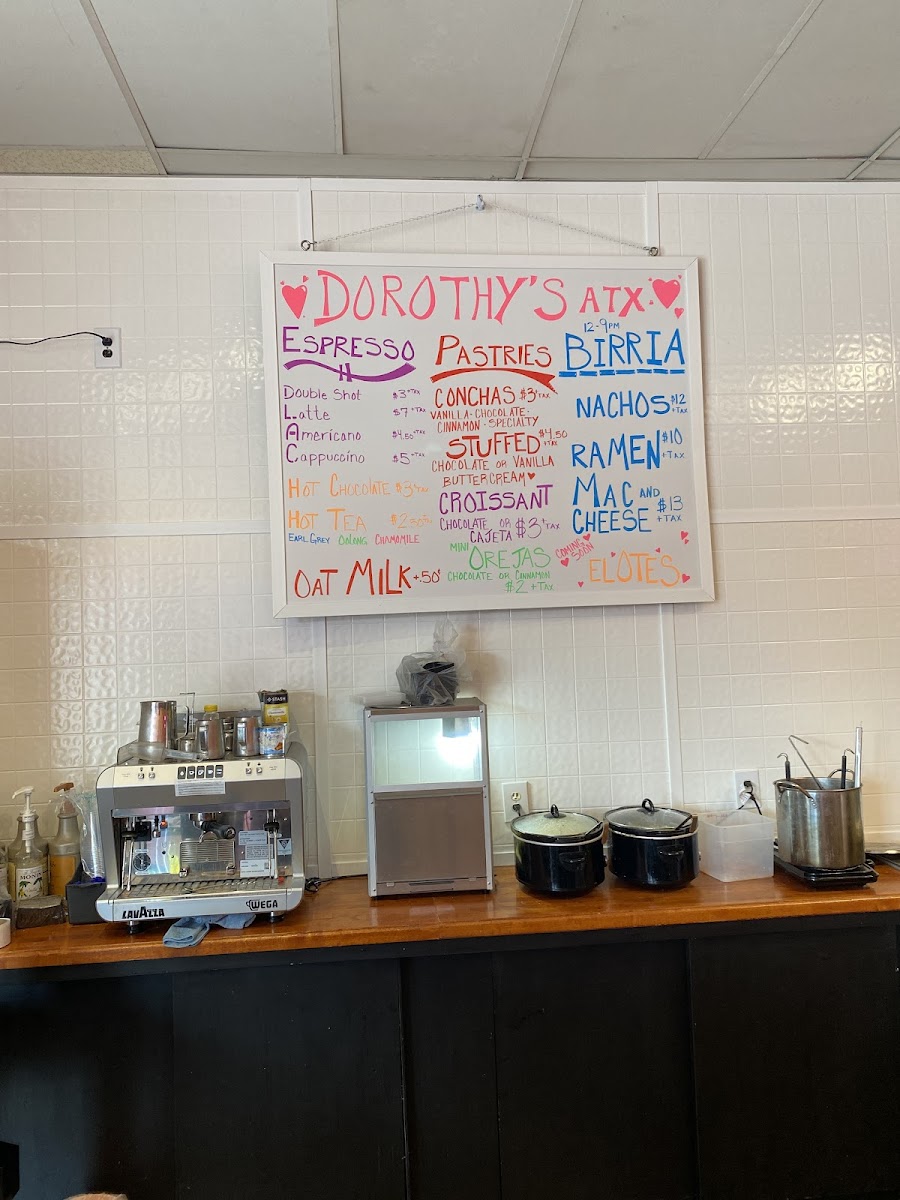 DOROTHY'S ATX
ESPRESSO
Double Shot $3+TAX
Latte $7+TAX
Americano $4.50+TAX
Cappuccino $5+TAX
HOT CHOCOLATE $3+TAX
HOT TEA
EARL GREY OOLONG CHAMOMILE
OAT MILK +.50¢
PASTRIES
CONCHAS $3+TAX
VANILLA · CHOCOLATE ·
CINNAMON · SPECIALTY
STUFFED $4.50 +TAX
CHOCOLATE OR VANILLA
BUTTERCREAM
CROISSANT
CHOCOLATE OR
CAJETA $3+TAX
MINI OREJAS
CHOCOLATE OR CINNAMON
$2 +TAX
12-9PM
BIRRIA
NACHOS $12 +TAX
RAMEN $10 +TAX
MAC AND
CHEESE $13 +TAX
COMING SOON
ELOTES
STASH
MONIN
LAVAZZA WEGA